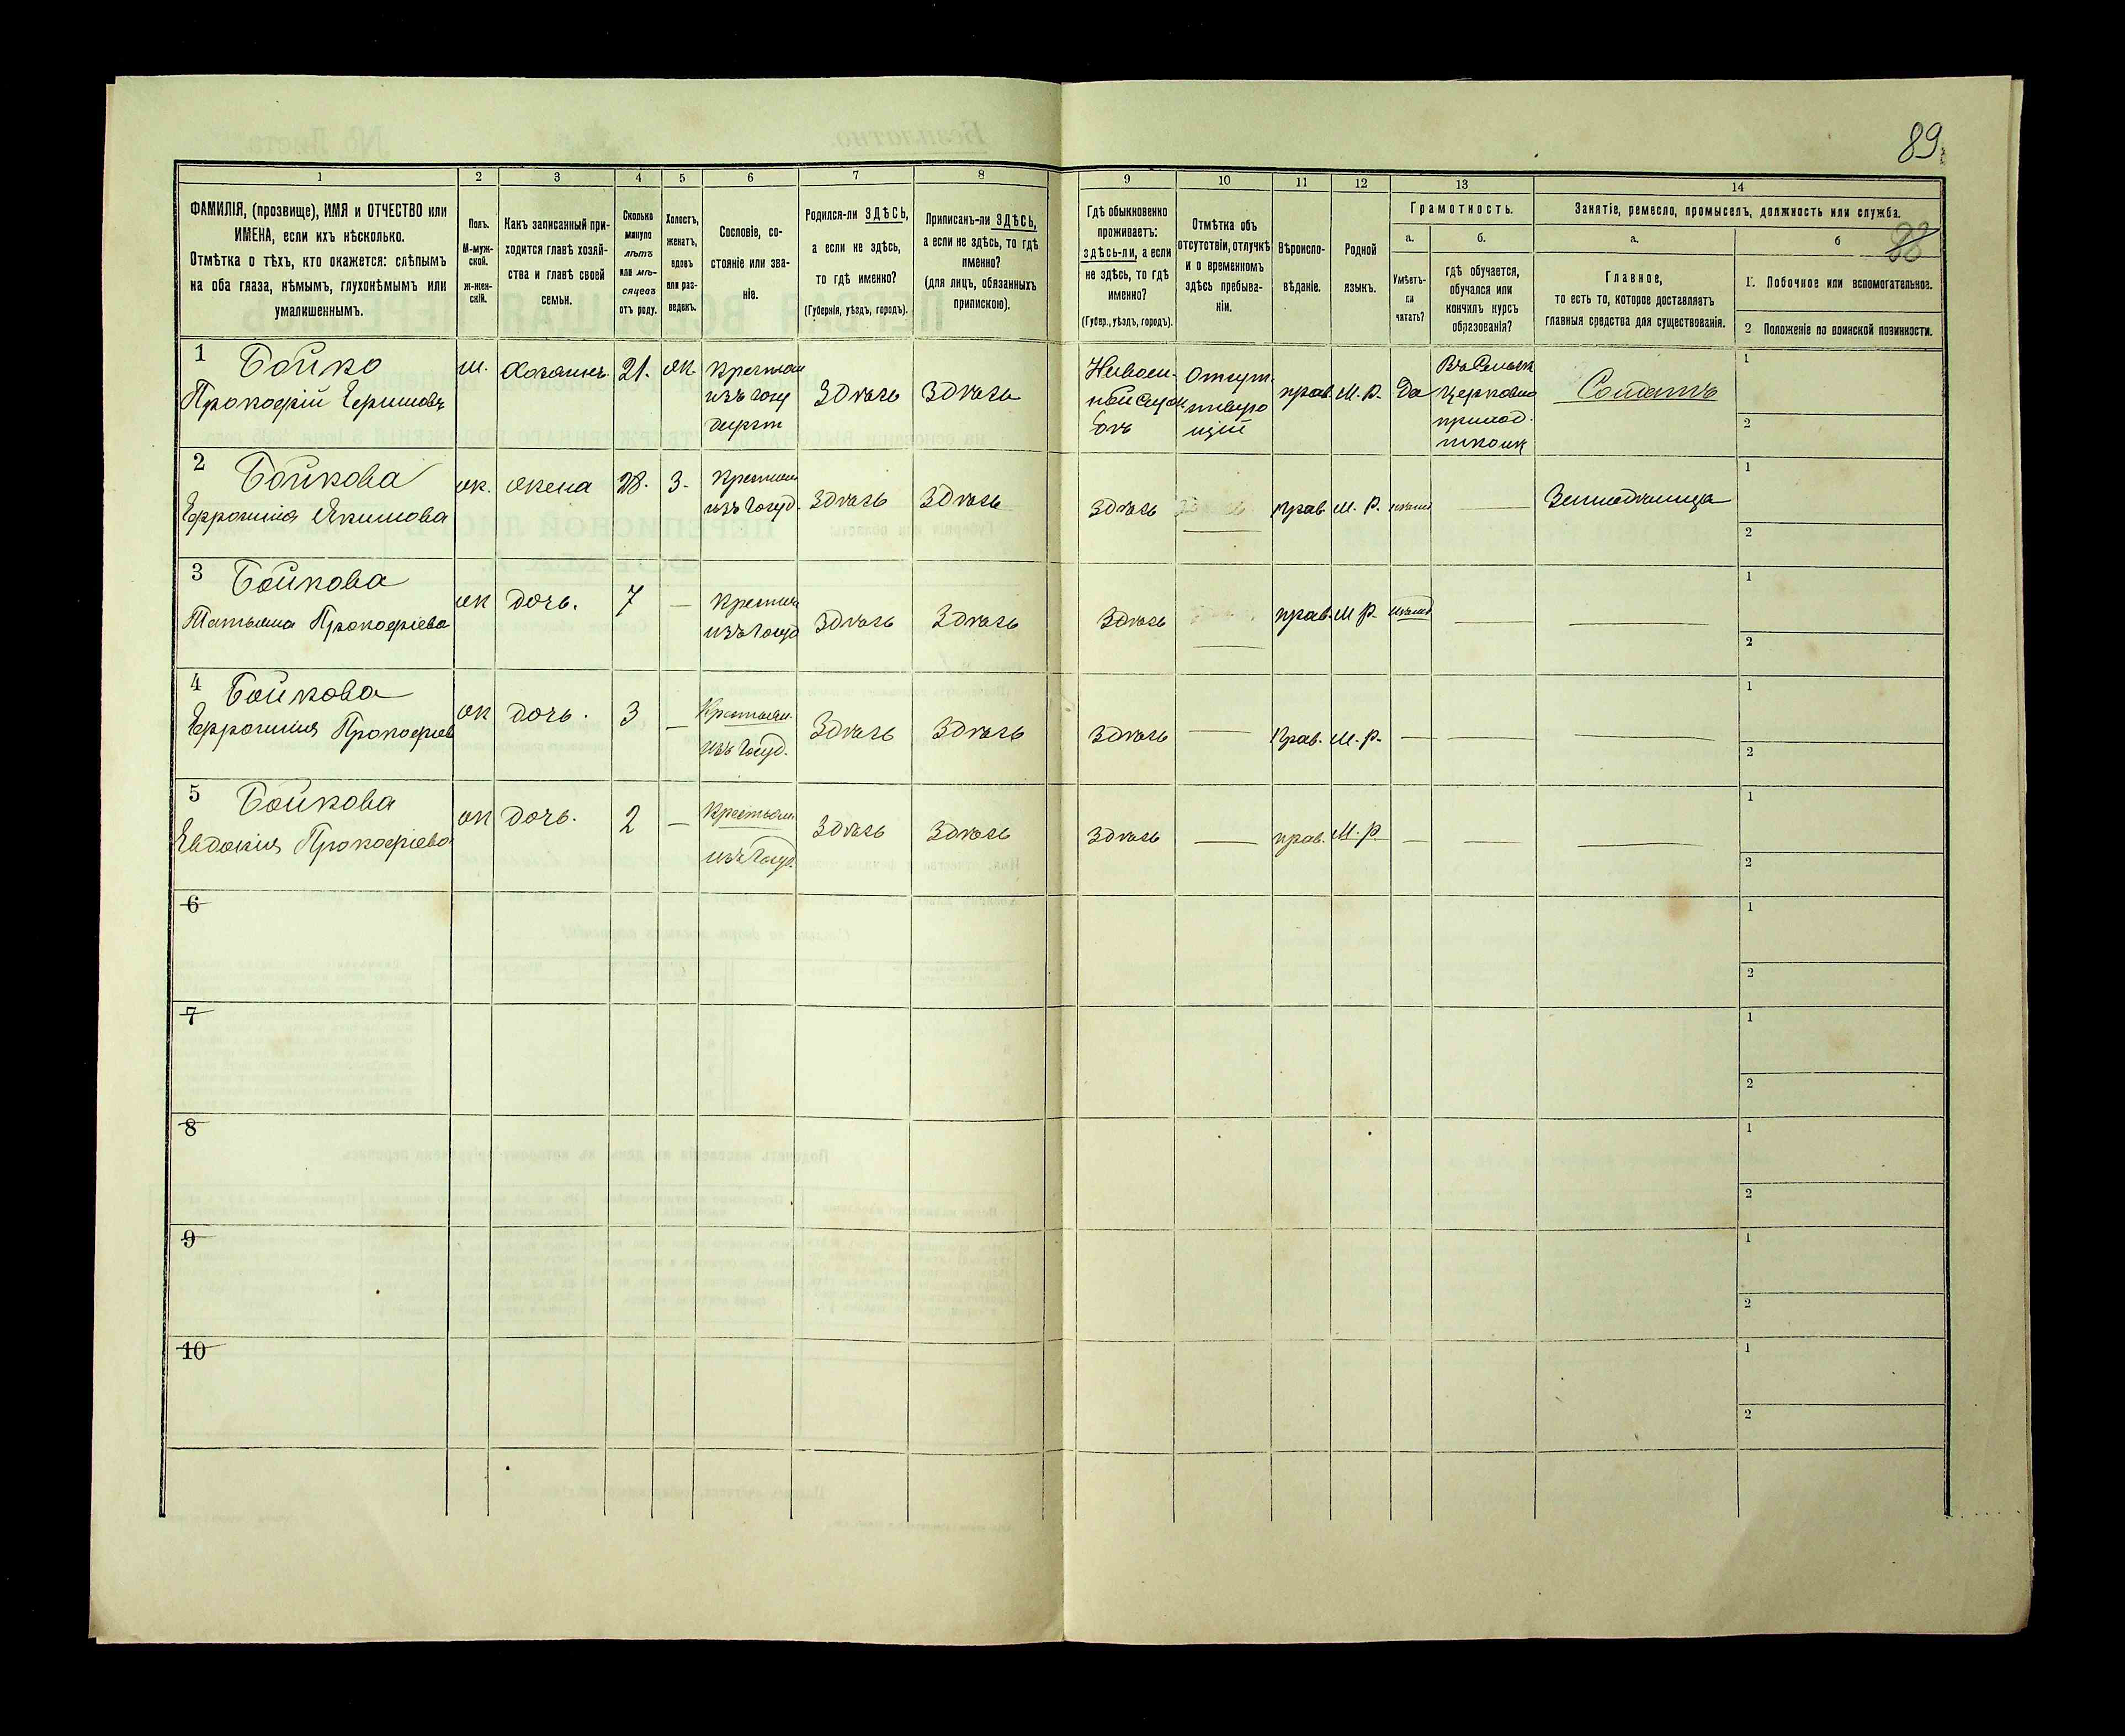 89
1 2 3 4 5 6 7 8 9 10 11 12 13 14
ФАМИЛІЯ, (прозвище), ИМЯ и ОТЧЕСТВО или
ИМЕНА, если ихъ нѣсколько.
Отмѣтка о тѣхъ, кто окажется: слѣпымъ
на оба глаза, нѣмымъ, глухонѣмымъ или
умалишеннымъ.
Полъ.
М-муж-
ской.
ж-жен-
скій.
Какъ записанный при-
ходится главѣ хозяй-
ства и главѣ своей
семьи.
Сколько
минуло
лѣтъ
или мѣ-
сяцевъ
отъ роду.
Холостъ,
женатъ,
вдовъ
или раз-
веденъ.
Сословіе, со-
стояніе или зва-
ніе.
Родился-ли ЗДѢСЬ,
а если не здѣсь,
то гдѣ именно?
(Губернія, уѣздъ, городъ).
Приписанъ-ли ЗДѢСЬ,
а если не здѣсь, то гдѣ
именно?
(для лицъ, обязанныхъ
припискою).
Гдѣ обыкновенно
проживаетъ:
здѣсь-ли, а если
не здѣсь, то гдѣ
именно?
(Губер., уѣздъ, городъ).
Отмѣтка объ
отсутствіи, отлучкѣ
и о временномъ
здѣсь пребыва-
ніи.
Вѣроиспо-
вѣданіе.
Родной
языкъ.
Грамотность.
а.
Умѣетъ-
ли
читать?
б.
гдѣ обучается,
обучался или
кончилъ курсъ
образованія?
Занятіе, ремесло, промыселъ, должность или служба.
а.
Главное,
то есть то, которое доставляетъ
главныя средства для существованія.
б
28
1. Побочное или вспомогательное.
2 Положеніе по воинской повинности.
1 Бойко
Прокофій
м. Хозяинъ 21. ж. Крестьян
изъ госу
Здѣсь Здѣсь
Отсут.
прав. М. Р. Да
Церковно
приход.
школѣ
Солдатъ
1
2
2 Бойкова
Ефросинія Якимова
ж. жена 28. З. Крестьян
изъ госуд.
Здѣсь Здѣсь Здѣсь прав. М. Р. — Земледѣлица
1
2
3 Бойкова
Татьяна Прокофіева
ж дочь. 7 — Крестьян
изъ госуд
Здѣсь Здѣсь Здѣсь — прав. М Р. — —
1
2
4 Бойкова
Ефросинія Прокофіев
ж дочь. 3 — Крестьян.
изъ госуд.
Здѣсь Здѣсь Здѣсь — Прав. М. Р. — — —
1
2
5 Бойкова
Евдокія Прокофіева
ж дочь. 2 — Крестьян
изъ госуд.
Здѣсь Здѣсь Здѣсь — прав. М. Р — — —
1
2
6
1
2
7
1
2
8
1
2
9
1
2
10
1
2